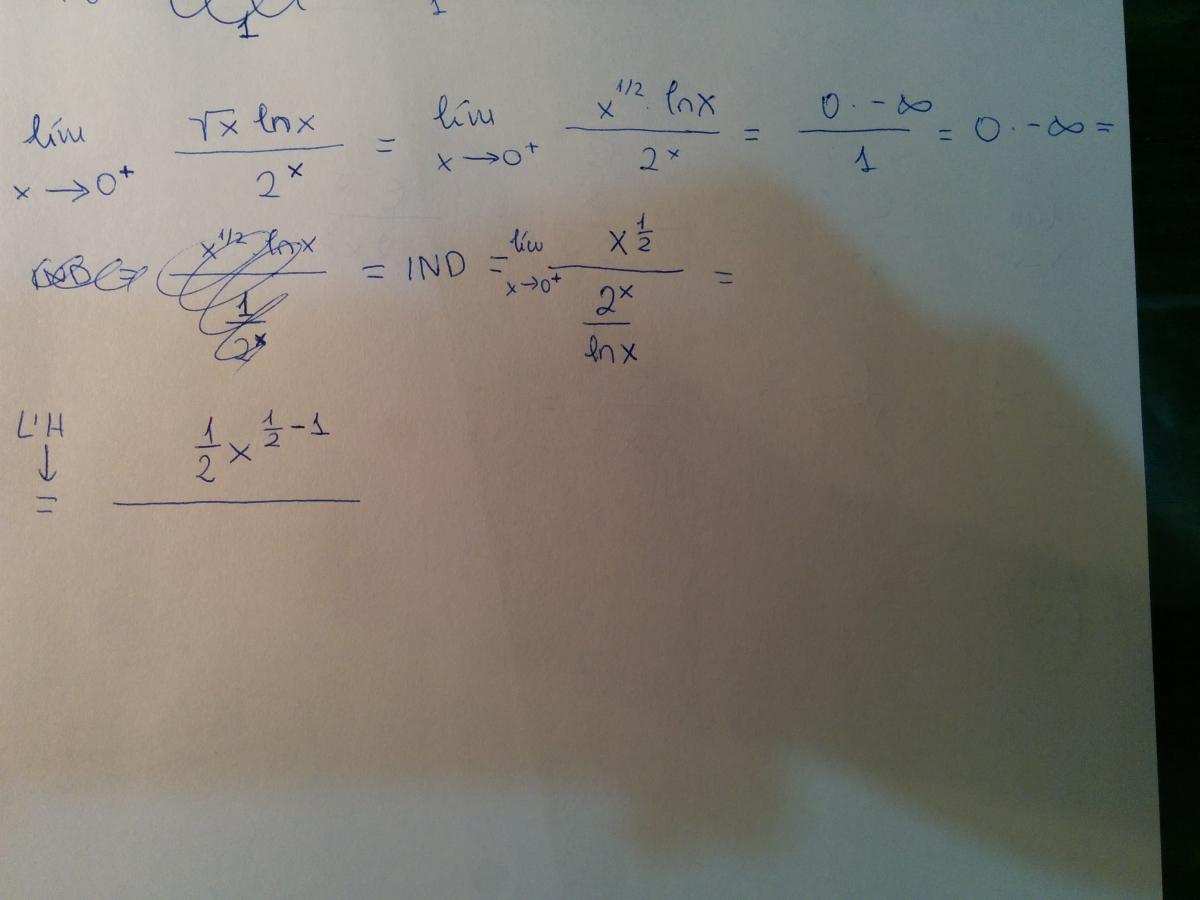 1 1
lim x→0⁺ √x ln x / 2ˣ = lim x→0⁺ x^{1/2} · ln x / 2ˣ = 0 · -∞ / 1 = 0 · -∞ =
x^{1/2} ln x / (1 / 2ˣ) = IND = lim x→0⁺ x^{1/2} / (2ˣ / ln x) =
L'H ↓ = 1/2 x^{1/2 - 1}